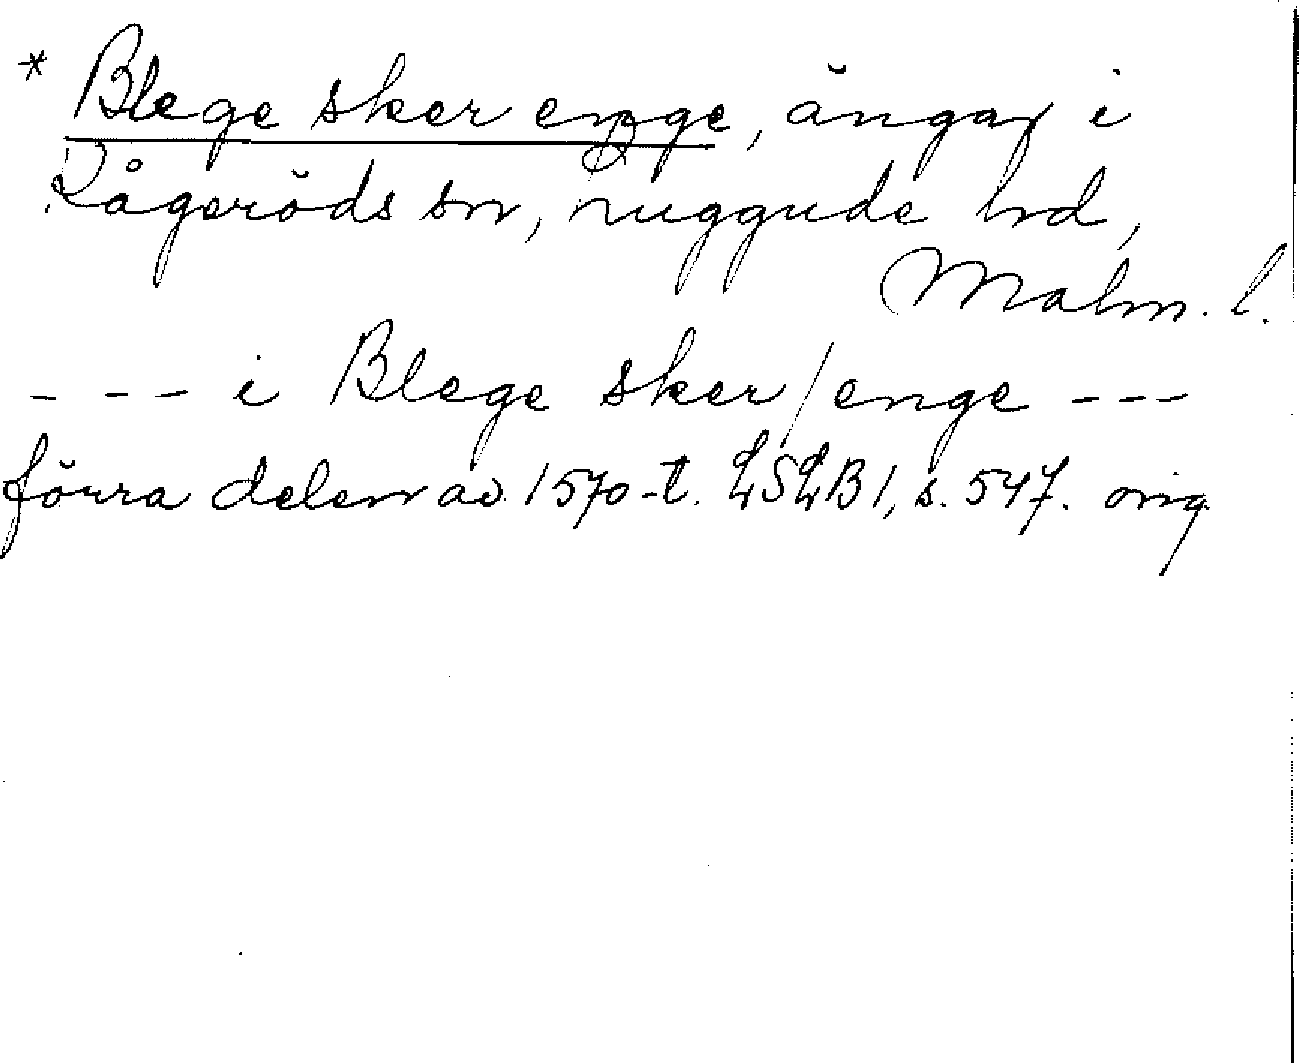 * Blege sker enge, ängar i
Kågeröds sn, Luggude hd,
Malm. l.
--- i Blege sker/enge ---
förra delen av 1570-t. LSLB 1, s. 547. orig.